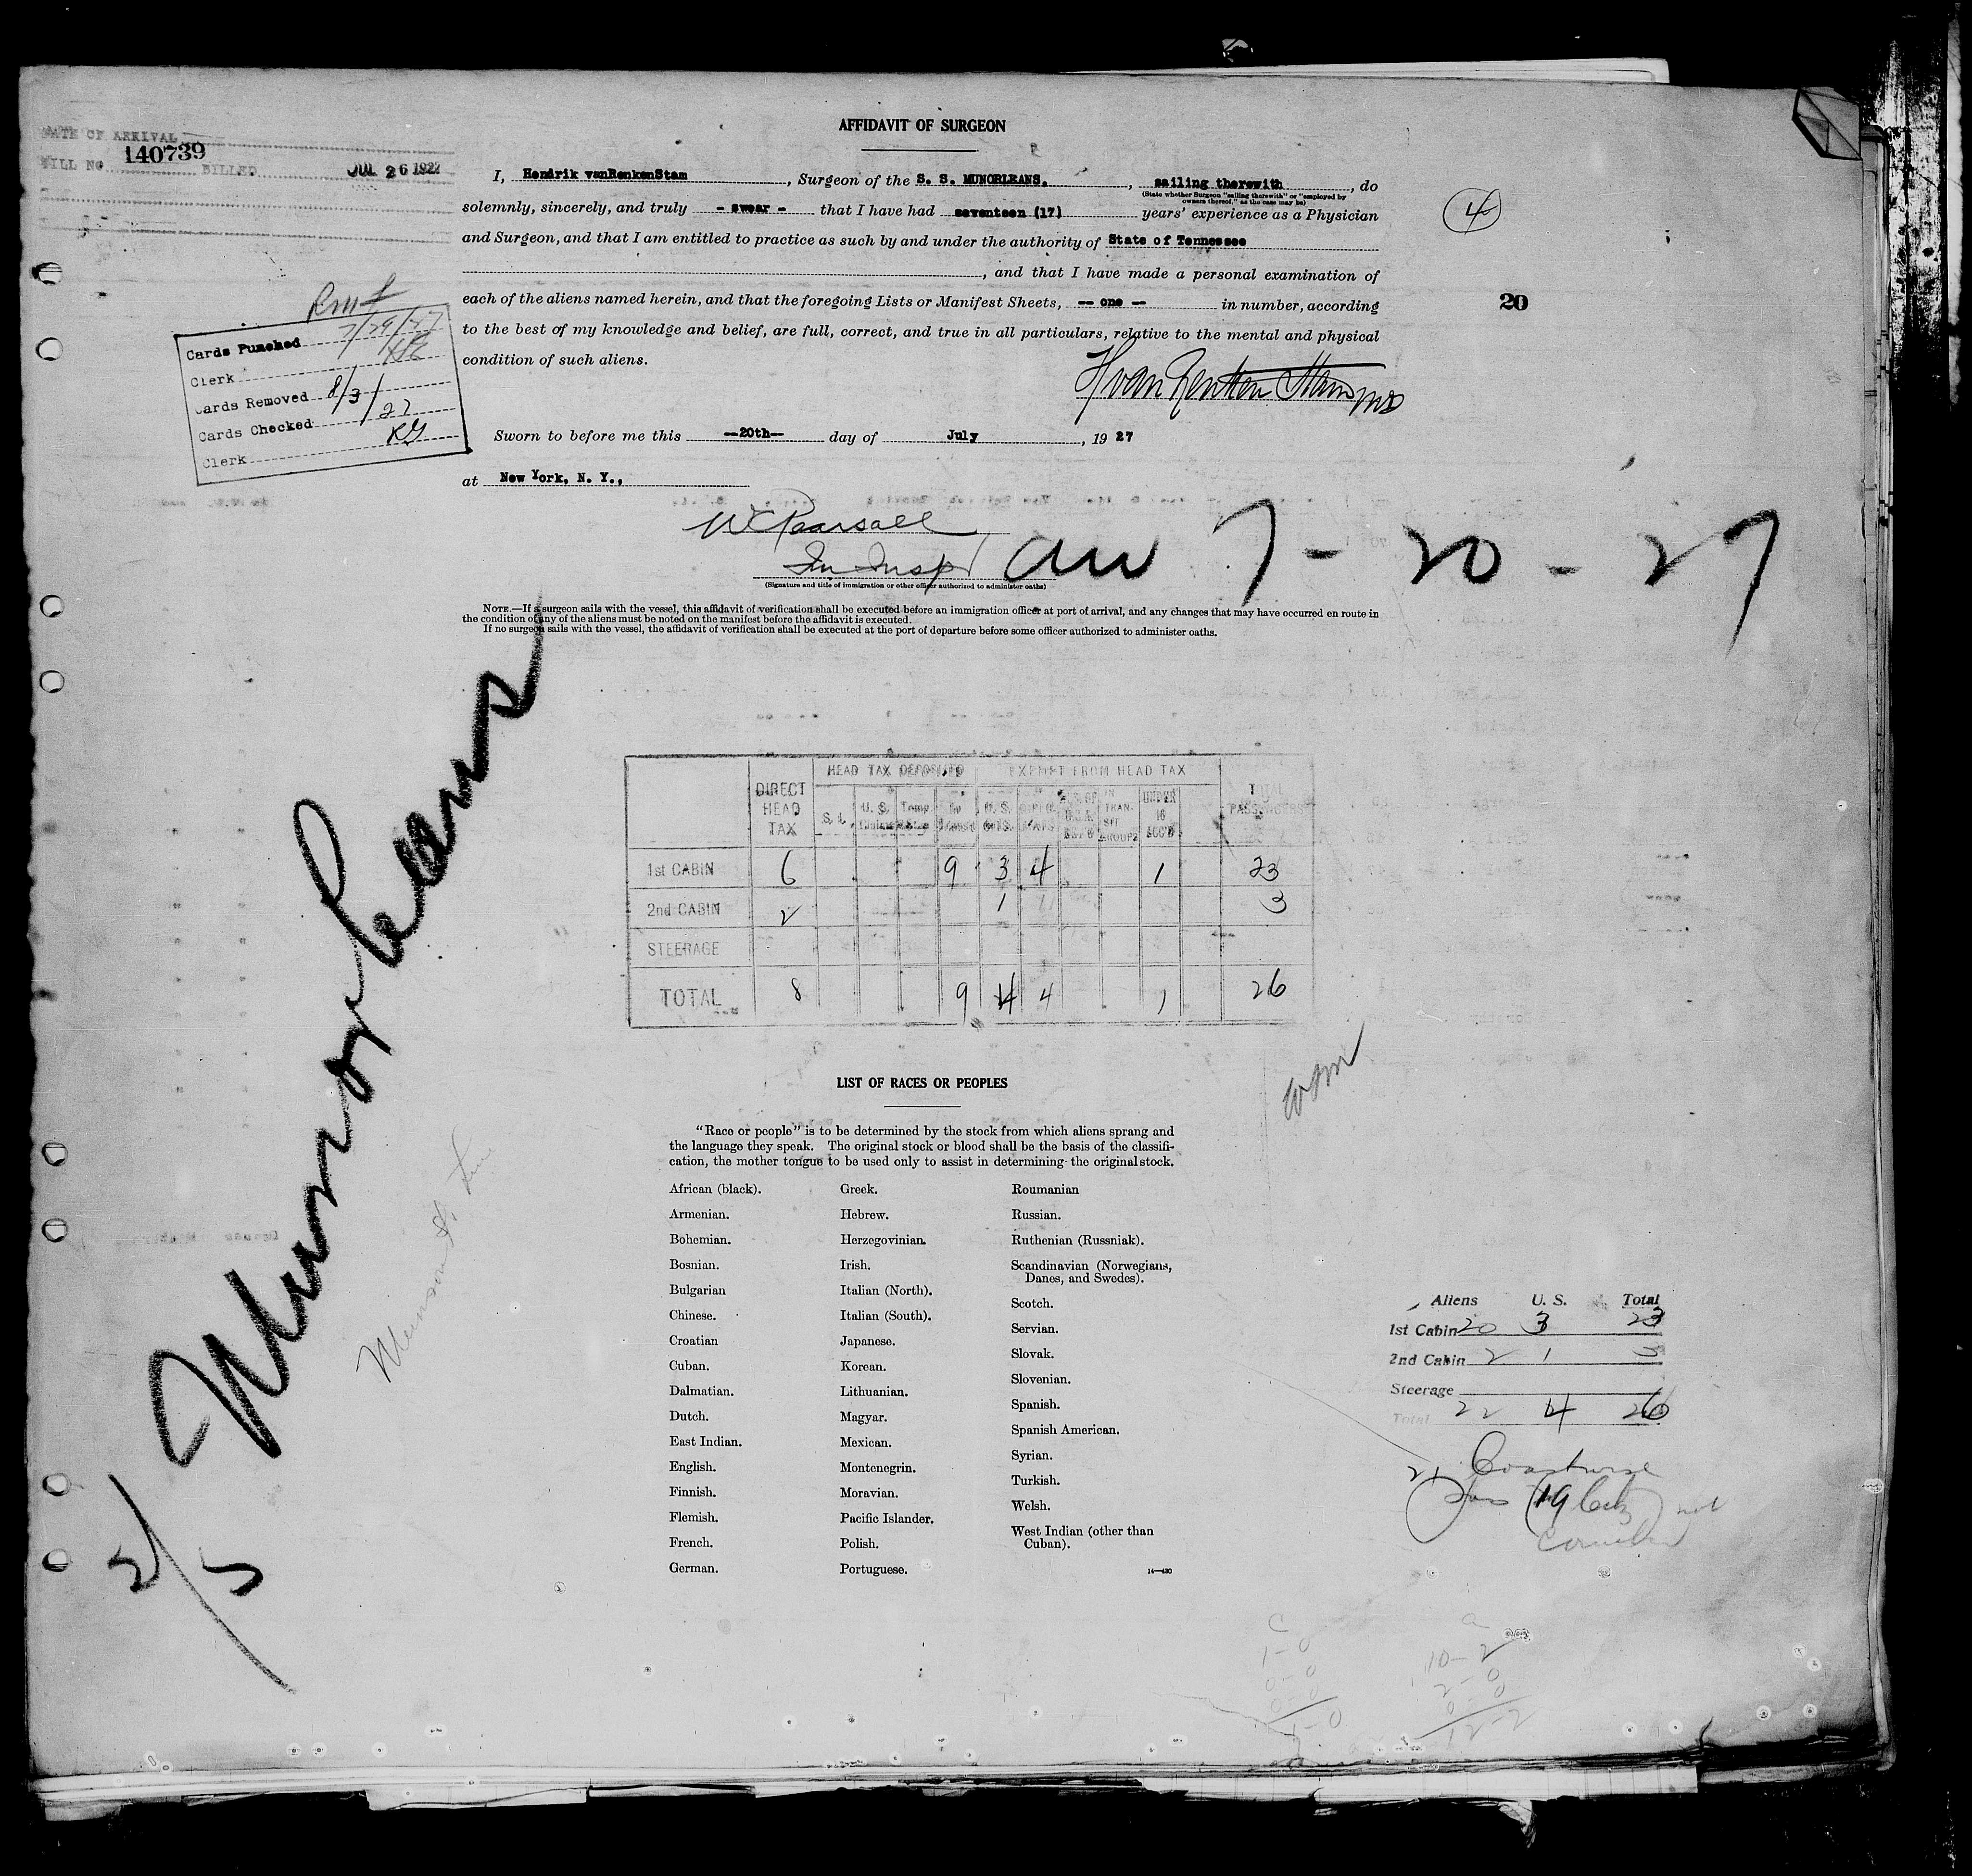 DATE OF ARRIVAL
BILL NO 140739 BILLED JUL 26 1927
AFFIDAVIT OF SURGEON
I, Hendrik vanRenkenStam, Surgeon of the S. S. MUNORLEANS., sailing therewith, do
(State whether Surgeon "sailing therewith" or "employed by
owners thereof," as the case may be)
solemnly, sincerely, and truly - swear - that I have had seventeen (17) years' experience as a Physician
and Surgeon, and that I am entitled to practice as such by and under the authority of State of Tennessee
, and that I have made a personal examination of
each of the aliens named herein, and that the foregoing Lists or Manifest Sheets, -- one -- in number, according
to the best of my knowledge and belief, are full, correct, and true in all particulars, relative to the mental and physical
condition of such aliens.
4
20
Cards Punched 7/29/27
Clerk
Cards Removed 8/3/27
Cards Checked
Clerk KG
Sworn to before me this --20th-- day of July, 19 27
at New York, N. Y.,
WC Pearsall
Im Insp
(Signature and title of immigration or other officer authorized to administer oaths)
7-20-27
NOTE.—If a surgeon sails with the vessel, this affidavit of verification shall be executed before an immigration officer at port of arrival, and any changes that may have occurred en route in
the condition of any of the aliens must be noted on the manifest before the affidavit is executed.
If no surgeon sails with the vessel, the affidavit of verification shall be executed at the port of departure before some officer authorized to administer oaths.
Munorleans
2/5
DIRECT HEAD TAX
HEAD TAX DEPOSITED
EXEMPT FROM HEAD TAX
TOTAL PASSENGERS
S. I. U. S. U. S. IN TRANSIT GROUPS UNDER 16 ACC'D
1st CABIN 6 9 3 4 1 23
2nd CABIN 2 1 3
STEERAGE
TOTAL 8 9 4 4 1 26
LIST OF RACES OR PEOPLES
"Race or people" is to be determined by the stock from which aliens sprang and
the language they speak. The original stock or blood shall be the basis of the classifi-
cation, the mother tongue to be used only to assist in determining the original stock.
African (black).
Armenian.
Bohemian.
Bosnian.
Bulgarian
Chinese.
Croatian
Cuban.
Dalmatian.
Dutch.
East Indian.
English.
Finnish.
Flemish.
French.
German.
Greek.
Hebrew.
Herzegovinian.
Irish.
Italian (North).
Italian (South).
Japanese.
Korean.
Lithuanian.
Magyar.
Mexican.
Montenegrin.
Moravian.
Pacific Islander.
Polish.
Portuguese.
Roumanian
Russian.
Ruthenian (Russniak).
Scandinavian (Norwegians,
Danes, and Swedes).
Scotch.
Servian.
Slovak.
Slovenian.
Spanish.
Spanish American.
Syrian.
Turkish.
Welsh.
West Indian (other than
Cuban).
14—430
Aliens U. S. Total
1st Cabin 20 3 23
2nd Cabin 2 1 3
Steerage
Total 22 4 26
21 Coastwise
not
10-2
2-0
0-0
12-2
1-0
0-0
0-0
1-0